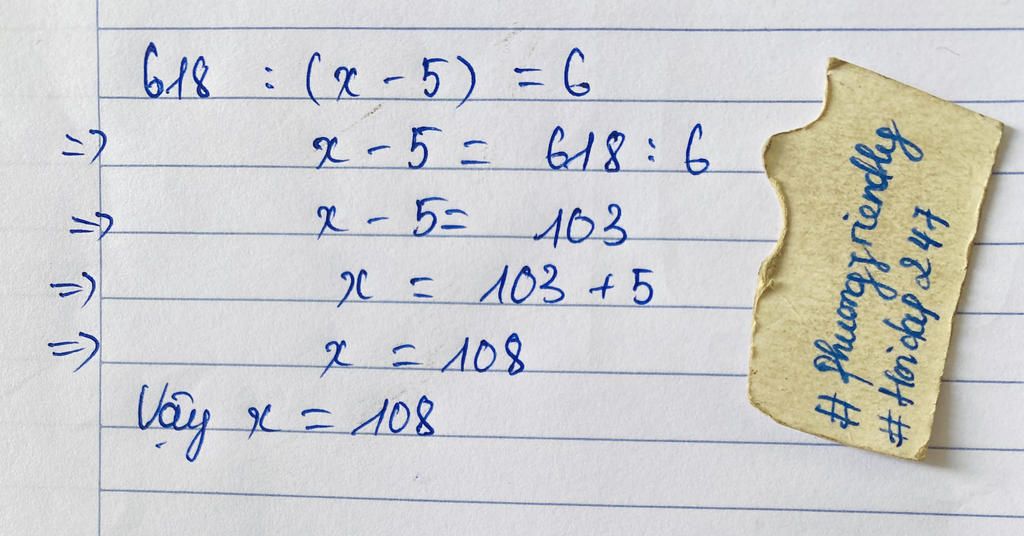 618 : (x - 5) = 6
=> x - 5 = 618 : 6
=> x - 5 = 103
=> x = 103 + 5
=> x = 108
Vậy x = 108
# Phuongfriendly
# Hoidap247